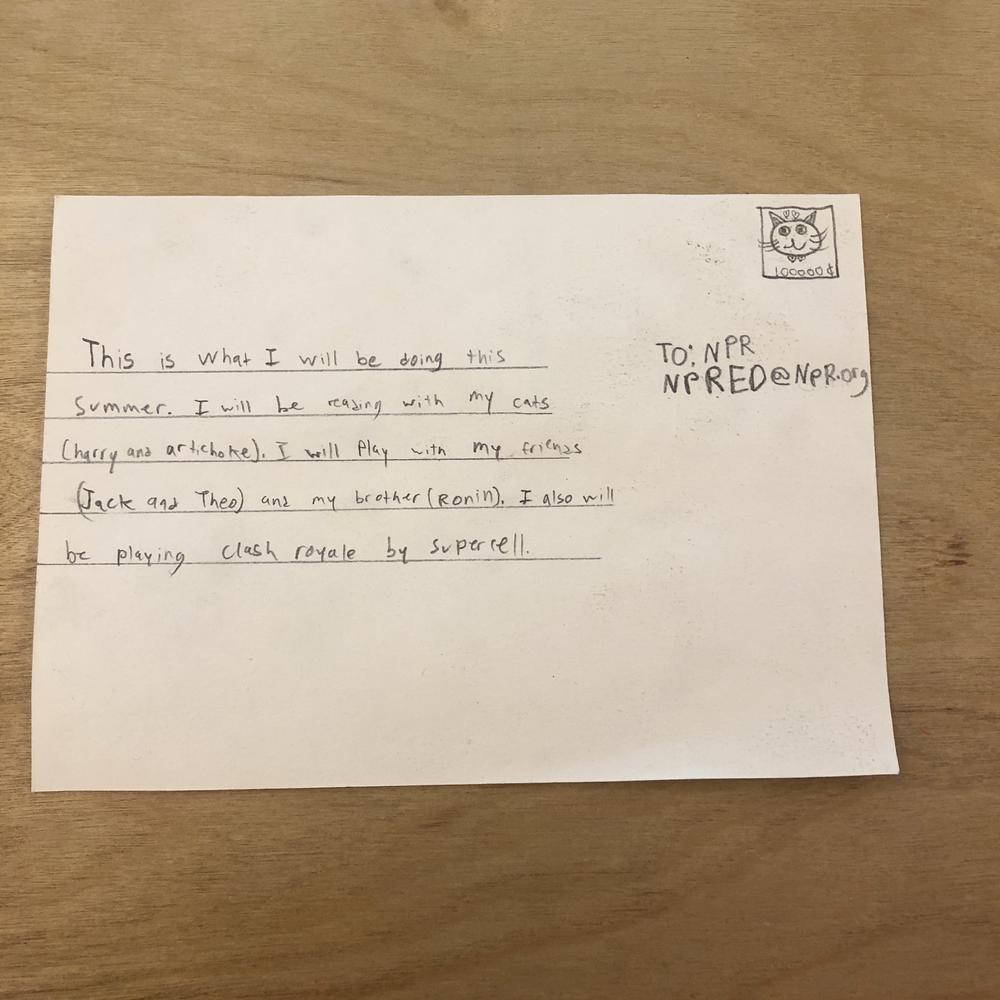 100000¢
This is what I will be doing this
Summer. I will be reading with my cats
(harry and artichoke). I will Play with my friends
(Jack and Theo) and my brother (Ronin). I also will
be playing clash royale by supercell.
TO: NPR
NPRED@NPR.org